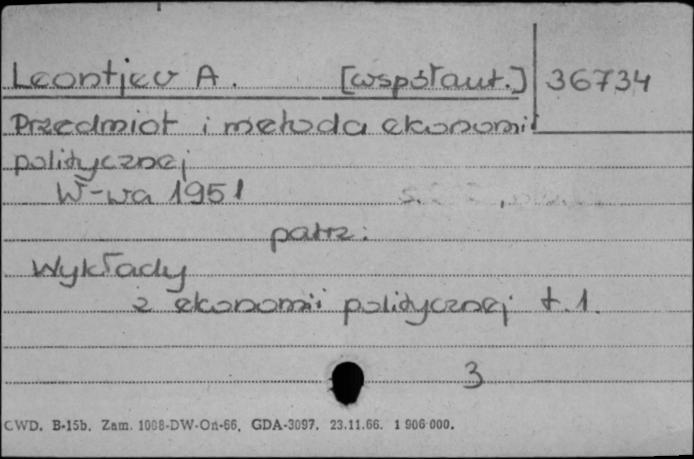 Leontjev A. [współaut.] 36734
Przedmiot i metoda ekonomii
politycznej
W-wa 1951
patrz:
Wykłady
z ekonomii politycznej t.1.
3
CWD. B-15b. Zam. 1068-DW-Oń-66. GDA-3097. 23.11.66. 1 906 000.